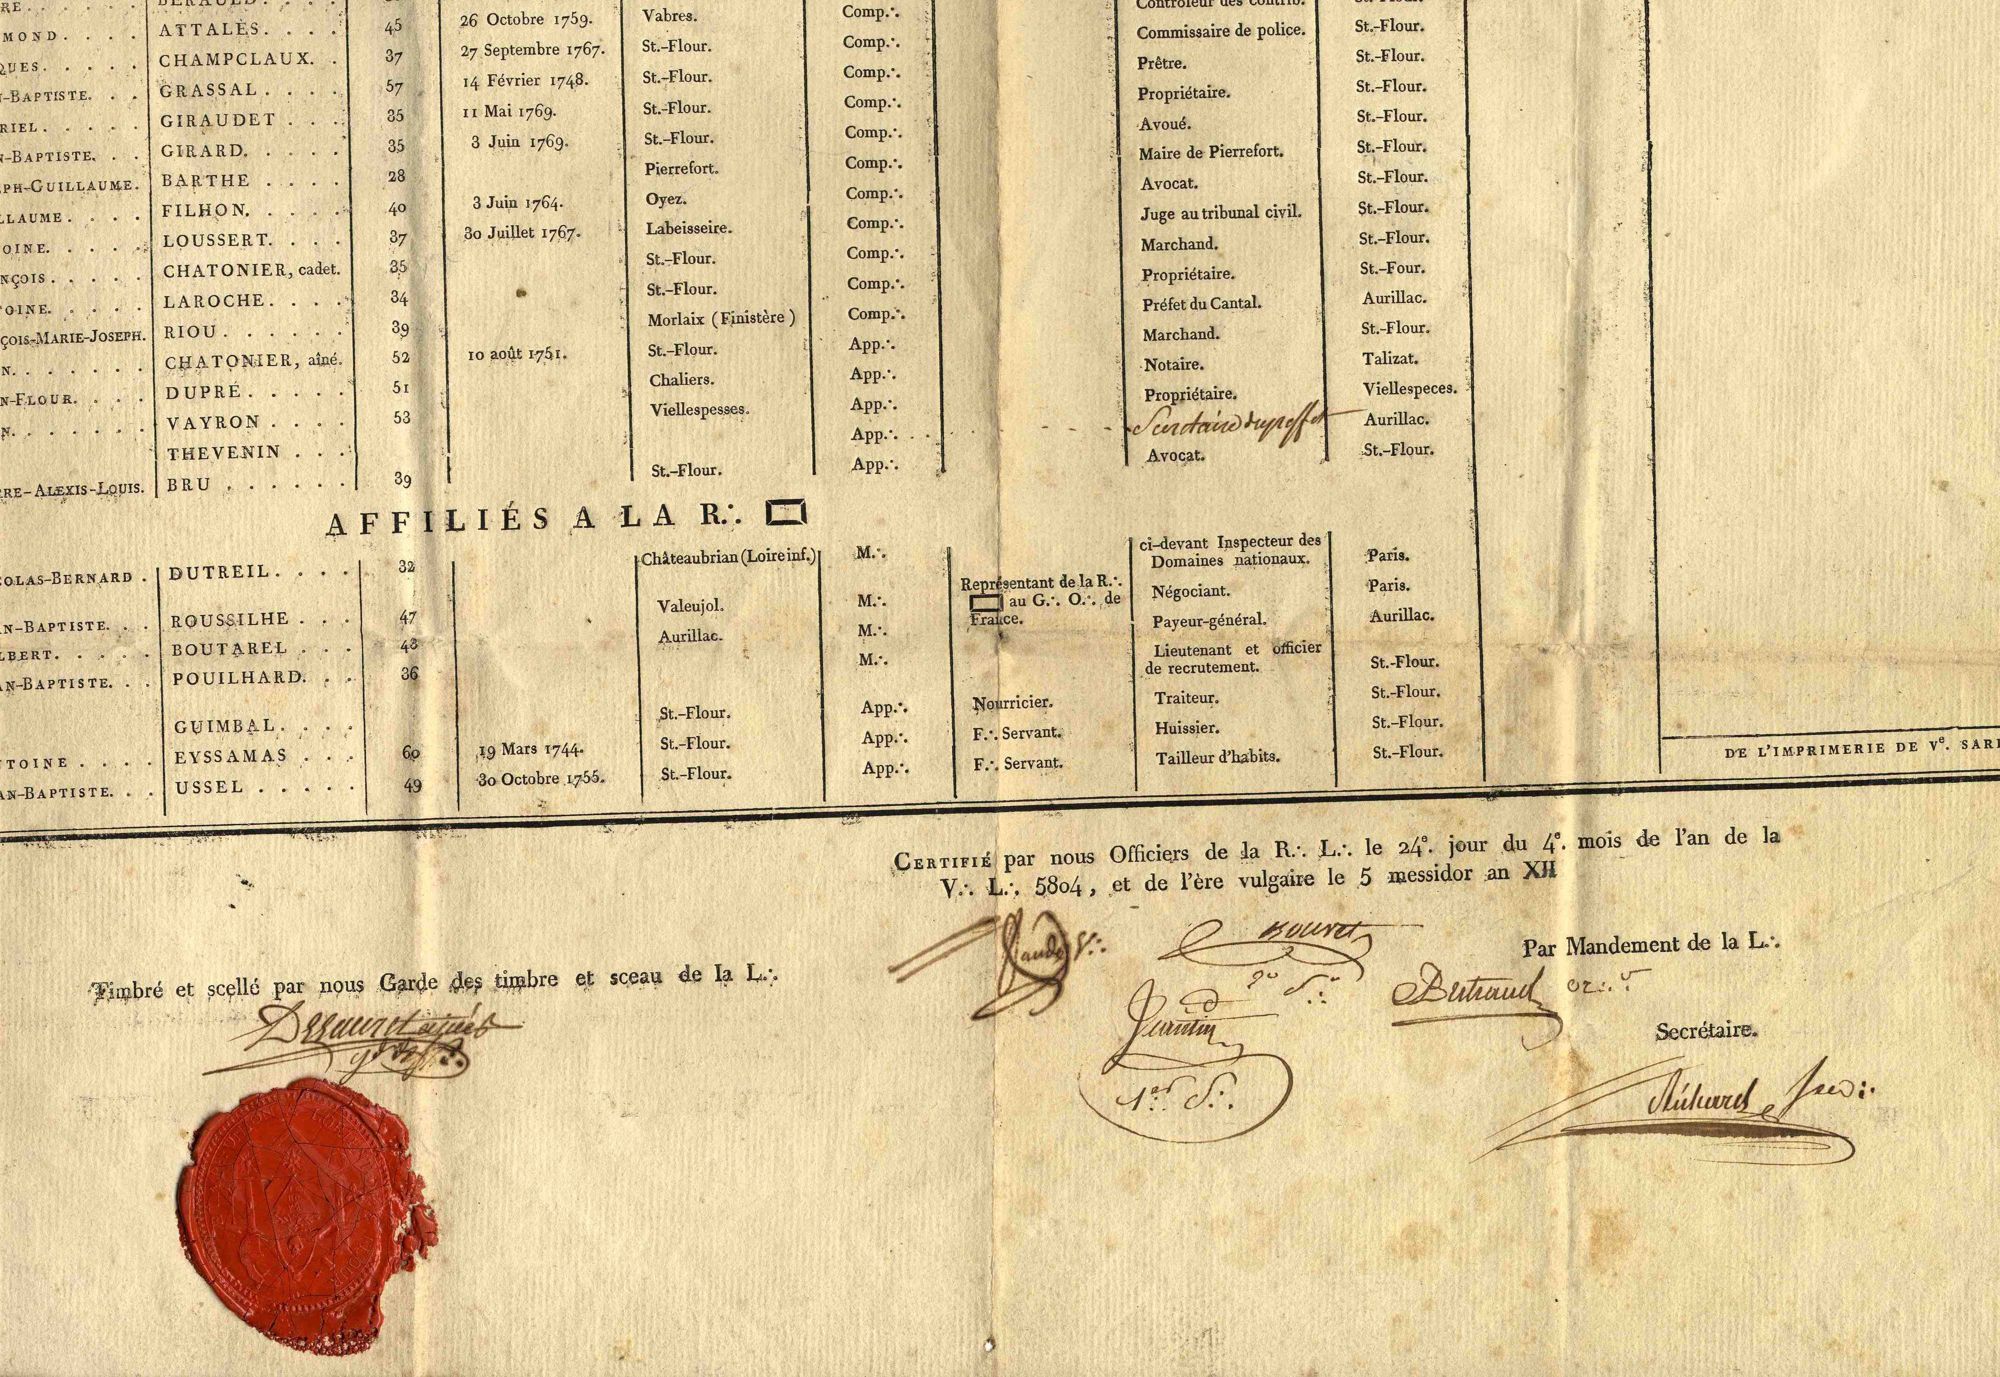 RE. BERAULD.
MOND. ATTALÈS. 45 26 Octobre 1759. Vabres. Comp∴ Contrôleur des contrib. St.-Flour.
QUES. CHAMPCLAUX. 37 27 Septembre 1767. St.-Flour. Comp∴ Commissaire de police. St.-Flour.
N-BAPTISTE. GRASSAL 57 14 Février 1748. St.-Flour. Comp∴ Prêtre. St.-Flour.
RIEL. GIRAUDET 35 11 Mai 1769. St.-Flour. Comp∴ Propriétaire. St.-Flour.
N-BAPTISTE. GIRARD. 35 3 Juin 1769. St.-Flour. Comp∴ Avoué. St.-Flour.
EPH-GUILLAUME. BARTHE 28 Pierrefort. Comp∴ Maire de Pierrefort. St.-Flour.
LLAUME. FILHON. 40 3 Juin 1764. Oyez. Comp∴ Avocat. St.-Flour.
TOINE. LOUSSERT. 37 30 Juillet 1767. Labeisseire. Comp∴ Juge au tribunal civil. St.-Flour.
NÇOIS. CHATONIER, cadet. 35 St.-Flour. Comp∴ Marchand. St.-Flour.
TOINE. LAROCHE. 34 St.-Flour. Comp∴ Propriétaire. St.-Four.
ÇOIS-MARIE-JOSEPH. RIOU. 39 Morlaix (Finistère) Comp∴ Préfet du Cantal. Aurillac.
N. CHATONIER, aîné. 52 10 août 1751. St.-Flour. App∴ Marchand. St.-Flour.
N-FLOUR. DUPRÉ 51 Chaliers. App∴ Notaire. Talizat.
N. VAYRON 53 Viellespesses. App∴ Propriétaire. Viellespeces.
THEVENIN App∴ Secrétaire du préfet Aurillac.
RRE-ALEXIS-LOUIS. BRU 39 St.-Flour. App∴ Avocat. St.-Flour.
AFFILIÉS A LA R∴
OLAS-BERNARD. DUTREIL. 32 Châteaubrian (Loire inf.) M∴ Représentant de la R∴ au G∴ O∴ de France. ci-devant Inspecteur des Domaines nationaux. Paris.
AN-BAPTISTE. ROUSSILHE 47 Valeujol. M∴ Négociant. Paris.
LBERT. BOUTAREL 48 Aurillac. M∴ Payeur-général. Aurillac.
AN-BAPTISTE. POUILHARD. 36 M∴ Lieutenant et officier de recrutement. St.-Flour.
GUIMBAL. St.-Flour. App∴ Nourricier. Traiteur. St.-Flour.
NTOINE EYSSAMAS 60 19 Mars 1744. St.-Flour. App∴ F∴ Servant. Huissier. St.-Flour.
AN-BAPTISTE. USSEL 49 30 Octobre 1755. St.-Flour. App∴ F∴ Servant. Tailleur d'habits. St.-Flour.
DE L'IMPRIMERIE DE Ve. SARR
CERTIFIÉ par nous Officiers de la R∴ L∴ le 24e. jour du 4e. mois de l'an de la
V∴ L∴ 5804, et de l'ère vulgaire le 5 messidor an XII
Par Mandement de la L∴
Timbré et scellé par nous Garde des timbre et sceau de la L∴
Bertrand
1er S∴
Secrétaire.